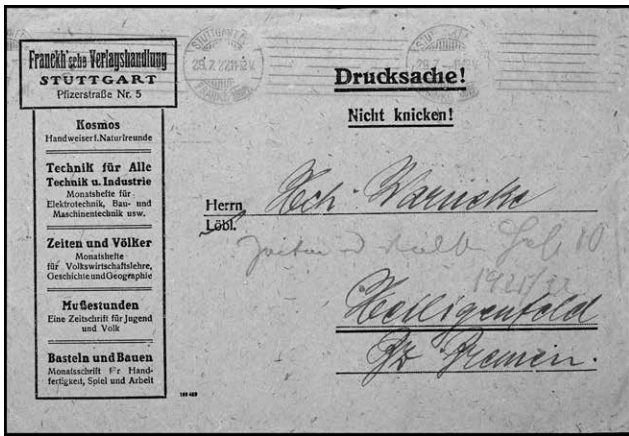 Franckh'sche Verlagshandlung
STUTTGART
Pfizerstraße Nr. 5
Kosmos
Handweiser f. Naturfreunde
Technik für Alle
Technik u. Industrie
Monatshefte für
Elektrotechnik, Bau- und
Maschinentechnik usw.
Zeiten und Völker
Monatshefte
für Volkswirtschaftslehre,
Geschichte und Geographie
Mußestunden
Eine Zeitschrift für Jugend
und Volk
Basteln und Bauen
Monatsschrift für Hand-
fertigkeit, Spiel und Arbeit
STUTTGART
Drucksache!
Nicht knicken!
Herrn Hch. Warneke
Löbl.
10
1921/22
Heiligenfelde
Bz Bremen.